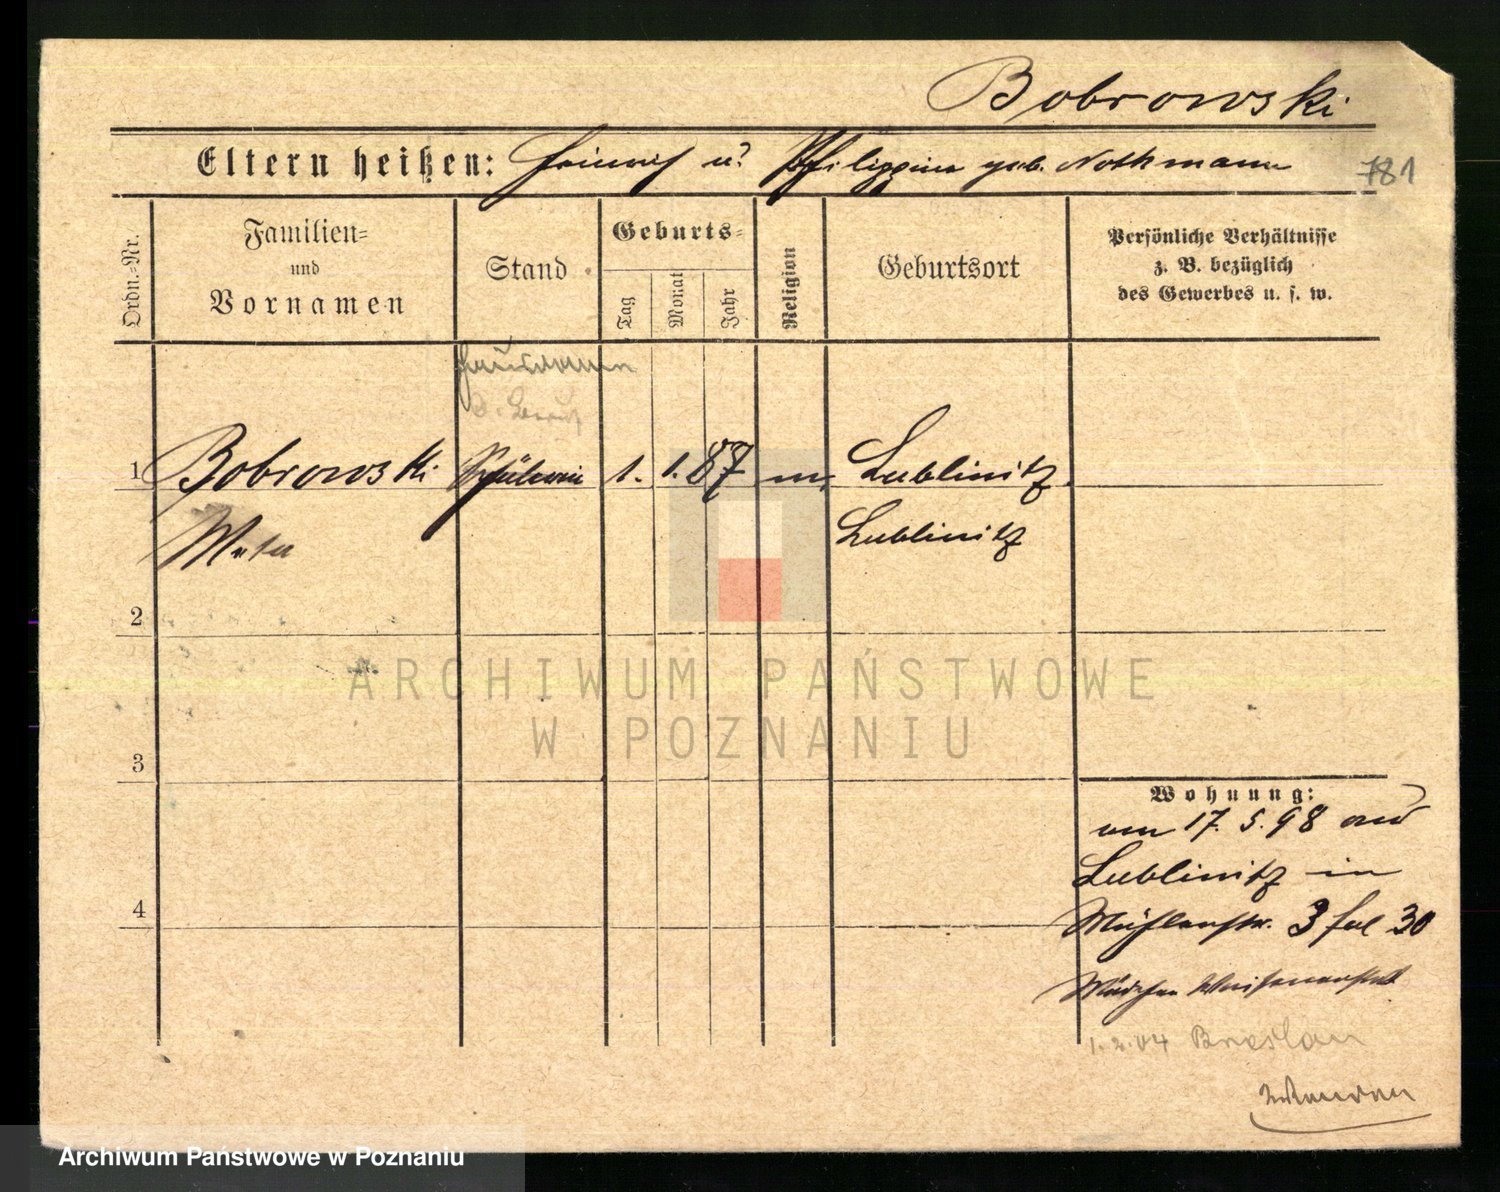 Bobrowski
Eltern heißen: Heinrich u. Philippine geb. Nothmann
781
Ordn.-Nr.
Familien-
und
Vornamen
Stand
Geburts-
Tag
Monat
Jahr
Religion
Geburtsort
Persönliche Verhältnisse
z. B. bezüglich
des Gewerbes u. s. w.
1 Bobrowski Schülerin 1. 1. 87 m. Lublinitz
Meta Lublinitz
2
3
4
Wohnung:
am 17. 5. 98 aus
Lublinitz in
Mühlenstr. 3 bei 30
Mädchen Waisenanstalt
1. 2. 04 Breslau
ARCHIWUM PAŃSTWOWE
W POZNANIU
Archiwum Państwowe w Poznaniu